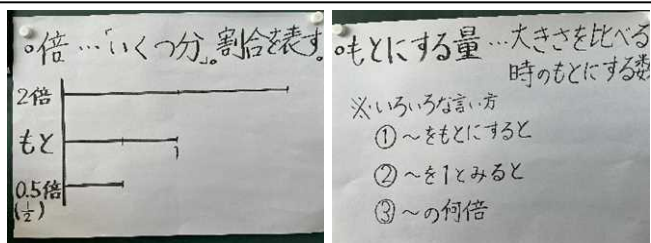 ○倍…「いくつ分」。割合を表す。
2倍
もと
1
0.5倍
(1/2)
○もとにする量…大きさを比べる
時のもとにする数
※いろいろな言い方
①〜をもとにすると
②〜を1とみると
③〜の何倍